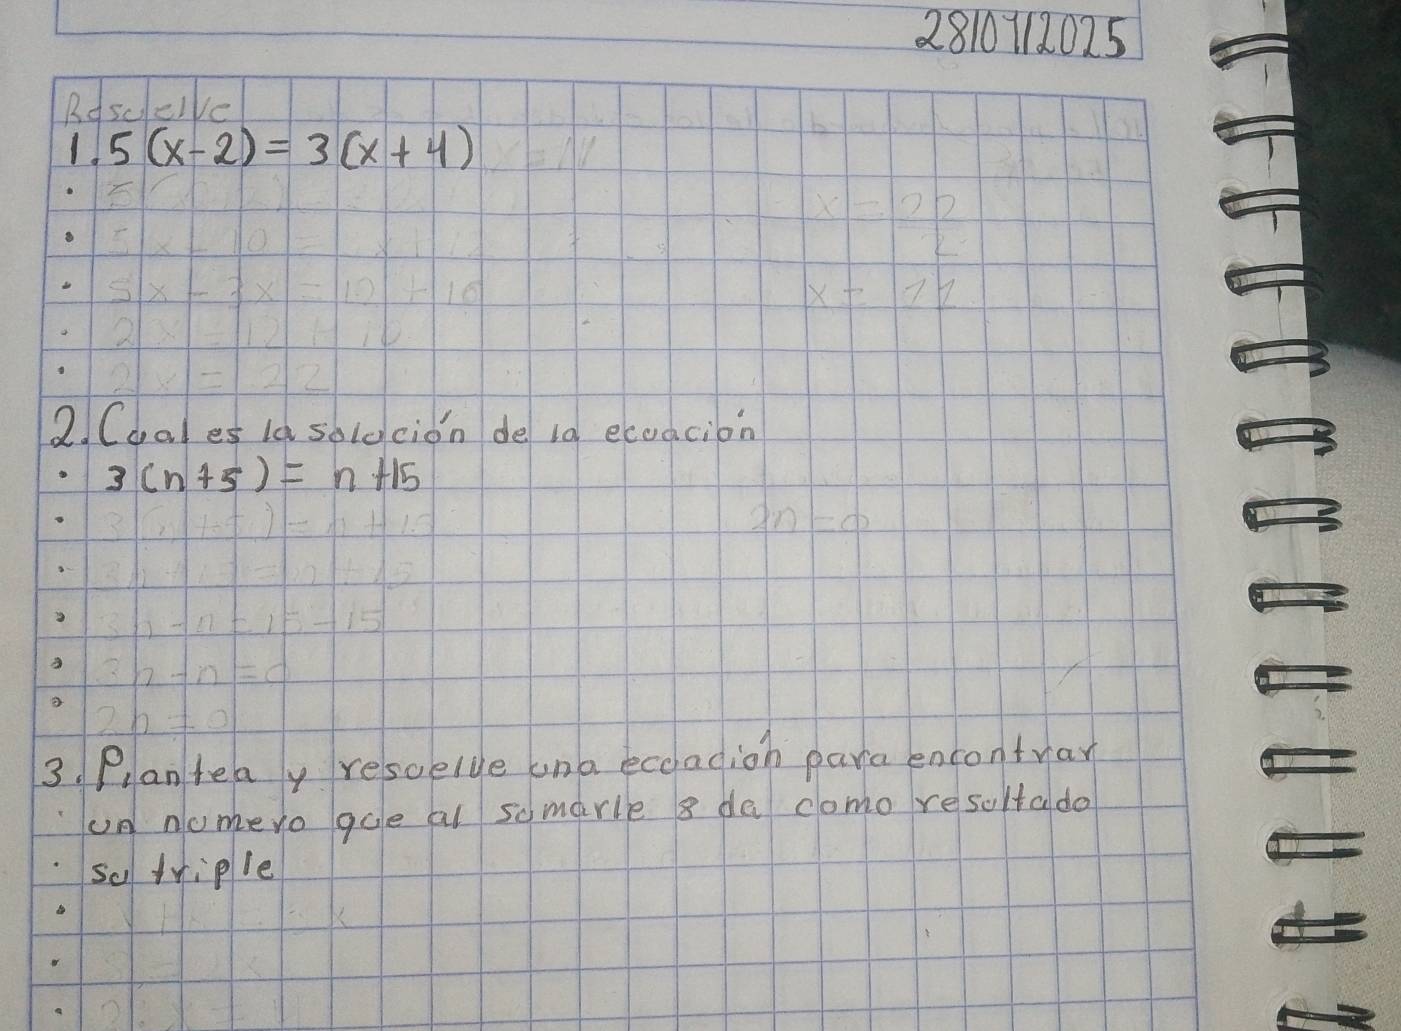 28/07/2025
Resuelve
1. 5(x-2)=3(x+4) x=11
5x-10=3x+12
x=22
2
5x-3x=12+10
x=11
2x=12+10
2x=22
2. Cual es la solución de la ecuación
3(n+5)=n+15
3(n+5)=n+15
2n=0
3n+15=n+15
3n-n=15-15
3n-n=0
2n=0
3. Plantea y resuelve una ecuación para encontrar
un numero que al sumarle 8 da como resultado
su triple